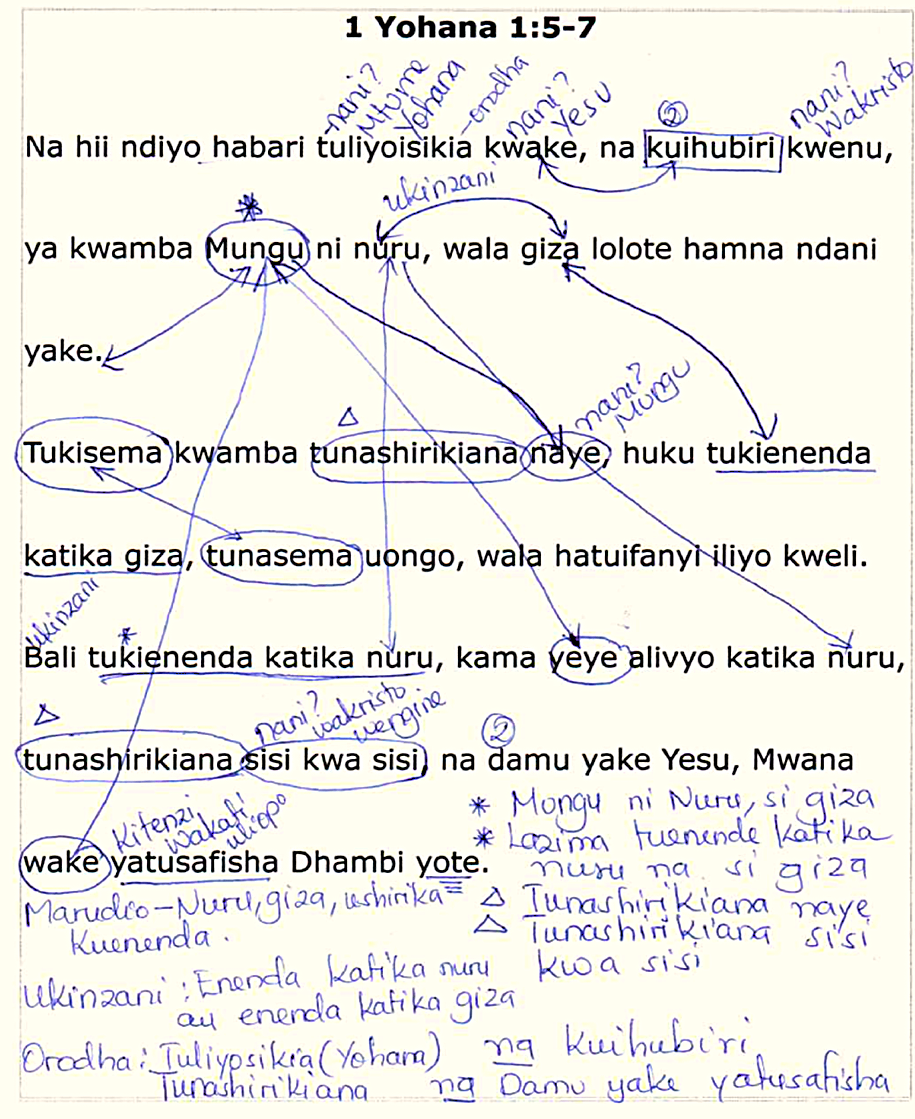 1 Yohana 1:5-7
-nani?
Mtume
Yohana
-orodha
nani?
Yesu
②
nani?
Wakristo
Na hii ndiyo habari tuliyoisikia kwake, na kuihubiri kwenu,
ukinzani
*
ya kwamba Mungu ni nuru, wala giza lolote hamna ndani
yake.
nani?
Mungu
Δ
Tukisema kwamba tunashirikiana naye, huku tukienenda
katika giza, tunasema uongo, wala hatuifanyi iliyo kweli.
ukinzani
*
Bali tukienenda katika nuru, kama yeye alivyo katika nuru,
Δ
nani? wakristo
wengine
②
tunashirikiana sisi kwa sisi, na damu yake Yesu, Mwana
Kitenzi
wakati
uliopo
wake yatusafisha Dhambi yote.
* Mungu ni Nuru, si giza
* Lazima tuenende katika
nuru na si giza
Δ Tunashirikiana naye
Δ Tunashirikiana sisi
kwa sisi
Marudio-Nuru, giza, ushirika
Kuenenda.
Ukinzani: Enenda katika nuru
au enenda katika giza
Orodha: Tuliyosikia (Yohana) na Kuihubiri
Tunashirikiana na Damu yake yatusafisha